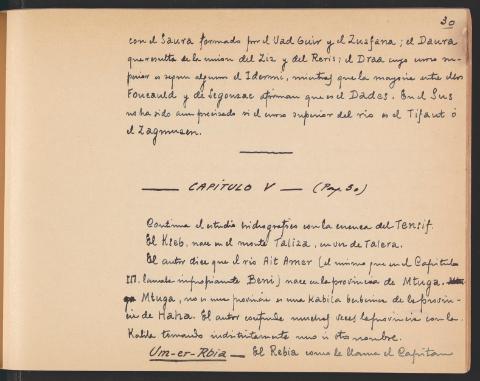 30
con el Saura formado por el Uad Guir y el Zusfana; el Daura
que resulta de la union del Ziz y del Reris; el Draa cuyo curso su-
perior es segun algunos el Idermi, mientras que la mayoria entre ellos
Foucauld y de Segonzac afirman que es el Dades. En el Sus
no ha sido aun precisado si el curso superior del rio es el Tifaut ó
el Zagmusen.
— CAPÍTULO V — (Pag. 30)
Continua el estudio hidrografico con la cuenca del Tensif.
El Kseb, nace en el monte Taliza, kabila en vez de Talera.
El autor dice que el rio Ait Amer (el mismo que en el Capitulo
III. llamaba impropiamente Beni) nace en la provincia de Mtuga.
Mtuga, no es una provincia es una kabila berberisca de la provin-
cia de Haha. El autor confunde muchas veces la provincia con la
Kabila tomando indistintamente uno ú otro nombre.
Um-er-Rbia — El Rebia como le llama el Capitan